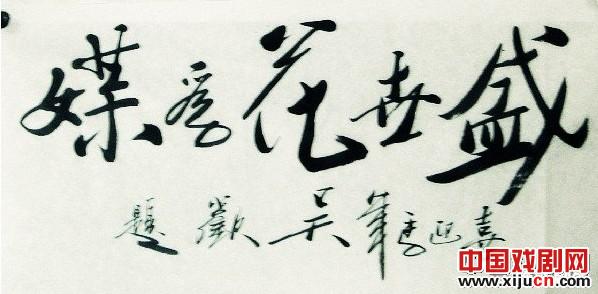 盛世花為媒
喜迎 吴歡題
中国戏剧网
www.xijucn.com